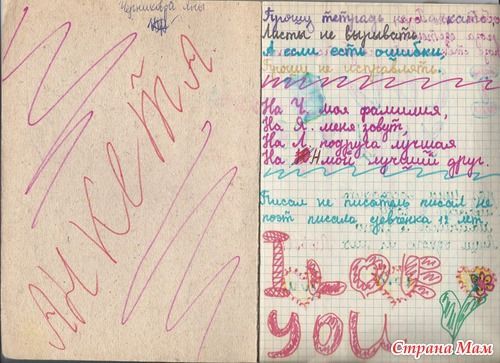 Черникова Яны
АНКЕТА.
Прошу тетрадь не
Листы не вырывать
А если есть ошибки,
Прошу не исправлять.
На Ч. моя фамилия,
На Я. меня зовут,
На Л. подруга лучшая
На Ю мой лучший друг.
Писал не писатель писал не
поэт писала девчёнка 12 лет.
I LOVE
YOU
Страна Мам